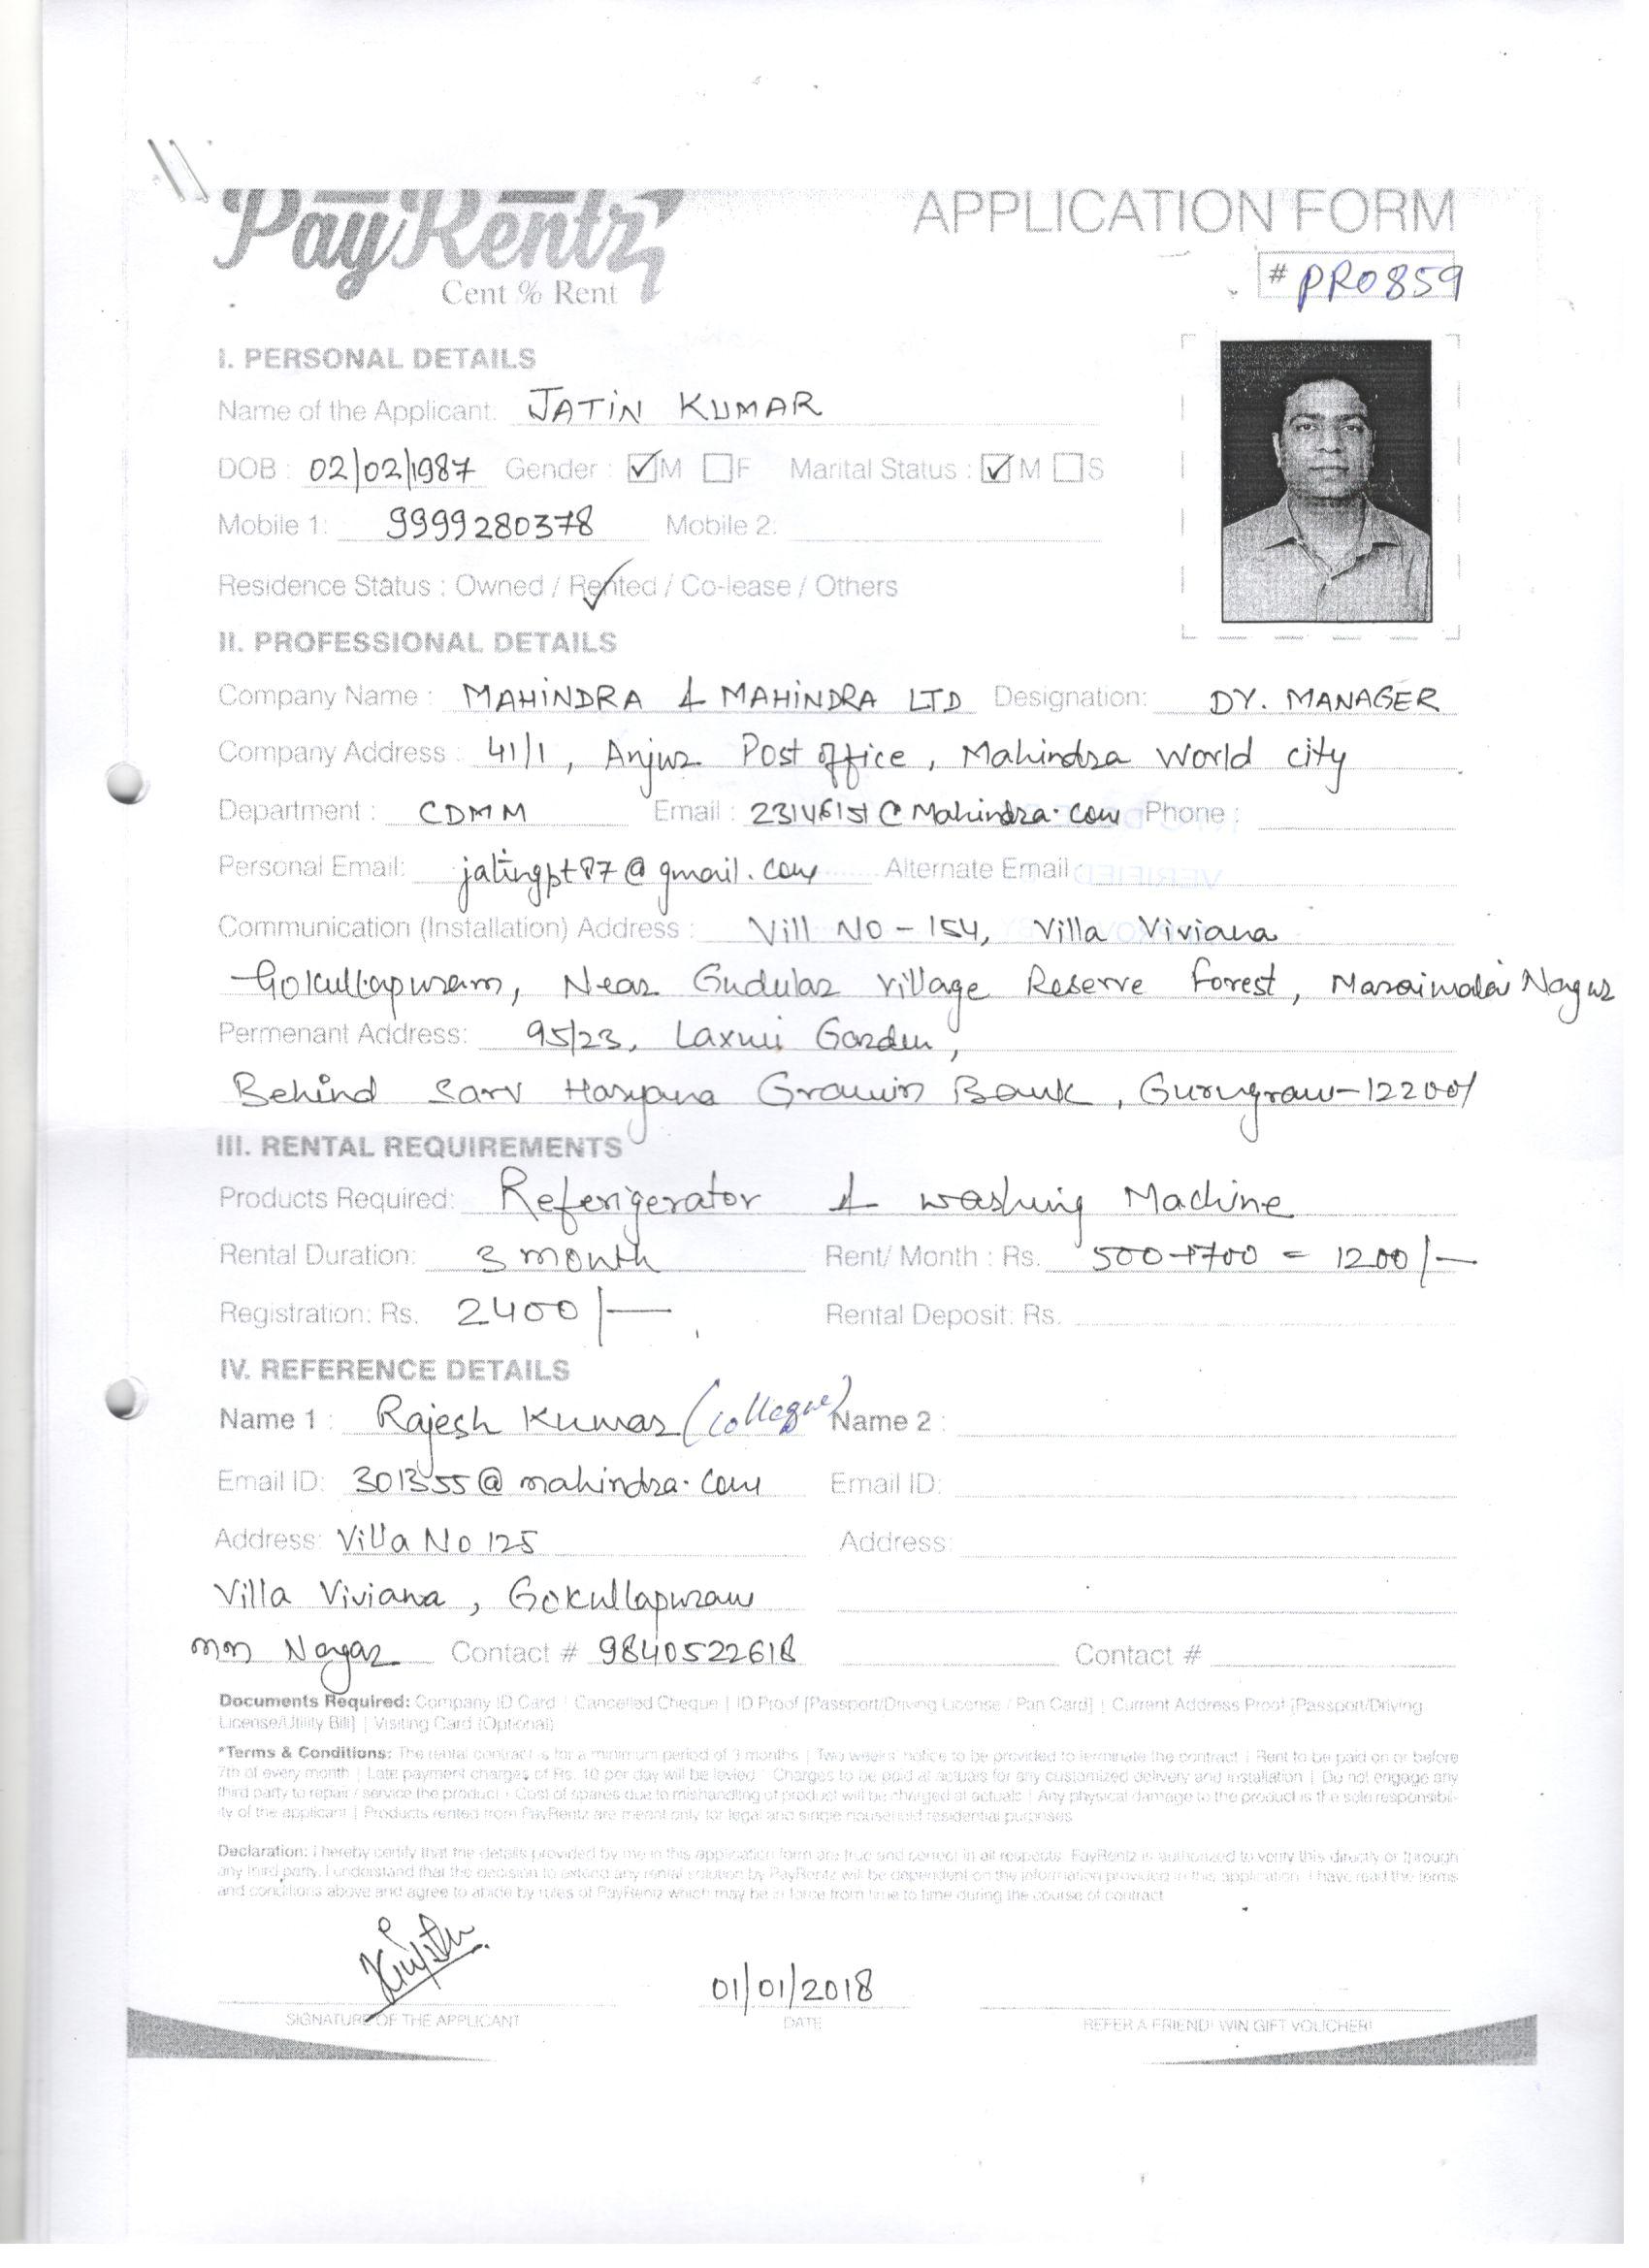 PayRentz
Cent % Rent
APPLICATION FORM
# PR0859
I. PERSONAL DETAILS
Name of the Applicant: JATIN KUMAR
DOB : 02/02/1987 Gender : ☑M ☐F Marital Status : ☑M ☐S
Mobile 1: 9999280378 Mobile 2:
Residence Status : Owned / Rented / Co-lease / Others
II. PROFESSIONAL DETAILS
Company Name : MAHINDRA & MAHINDRA LTD Designation: DY. MANAGER
Company Address : 41/1, Anjur Post office, Mahindra World city
Department : CDMM Email : 23146151@Mahindra.com Phone :
Personal Email: jatingpt87@gmail.com Alternate Email :
Communication (Installation) Address : Vill No - 154, Villa Viviana
Gokullapuram, Near Gudular Village Reserve Forest, Maraimalai Nagar
Permenant Address: 95/23, Laxmi Garden,
Behind Sarv Haryana Gramin Bank, Gurugram-122001
III. RENTAL REQUIREMENTS
Products Required: Referigerator & washing Machine
Rental Duration: 3 month Rent/ Month : Rs. 500+700 = 1200/-
Registration: Rs. 2400/- Rental Deposit: Rs.
IV. REFERENCE DETAILS
Name 1 : Rajesh Kumar (Collegue) Name 2 :
Email ID: 301355@mahindra.com Email ID:
Address: Villa No 125 Address:
Villa Viviana, Gokullapuram
mm Nagar Contact # 9840522618 Contact #
Documents Required: Company ID Card | Cancelled Cheque | ID Proof [Passport/Driving License / Pan Card] | Current Address Proof [Passport/Driving
License/Utility Bill] | Visiting Card (Optional)
*Terms & Conditions: The rental contract is for a minimum period of 3 months | Two weeks' notice to be provided to terminate the contract | Rent to be paid on or before
7th of every month | Late payment charges of Rs. 10 per day will be levied | Charges to be paid at actuals for any customized delivery and installation | Do not engage any
third party to repair / service the product | Cost of spares due to mishandling of product will be charged at actuals | Any physical damage to the product is the sole responsibil-
ity of the applicant | Products rented from PayRentz are meant only for legal and single household residential purposes
Declaration: I hereby certify that the details provided by me in this application form are true and correct in all respects. PayRentz is authorized to verify this directly or through
any third party. I understand that the decision to extend any rental solution by PayRentz will be dependent on the information provided in this application. I have read the terms
and conditions above and agree to abide by rules of PayRentz which may be in force from time to time during the course of contract
01/01/2018
SIGNATURE OF THE APPLICANT DATE REFER A FRIEND! WIN GIFT VOUCHER!